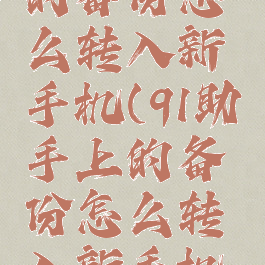 的备份怎
么转入新
手机(91助
手上的备
份怎么转
入新手机